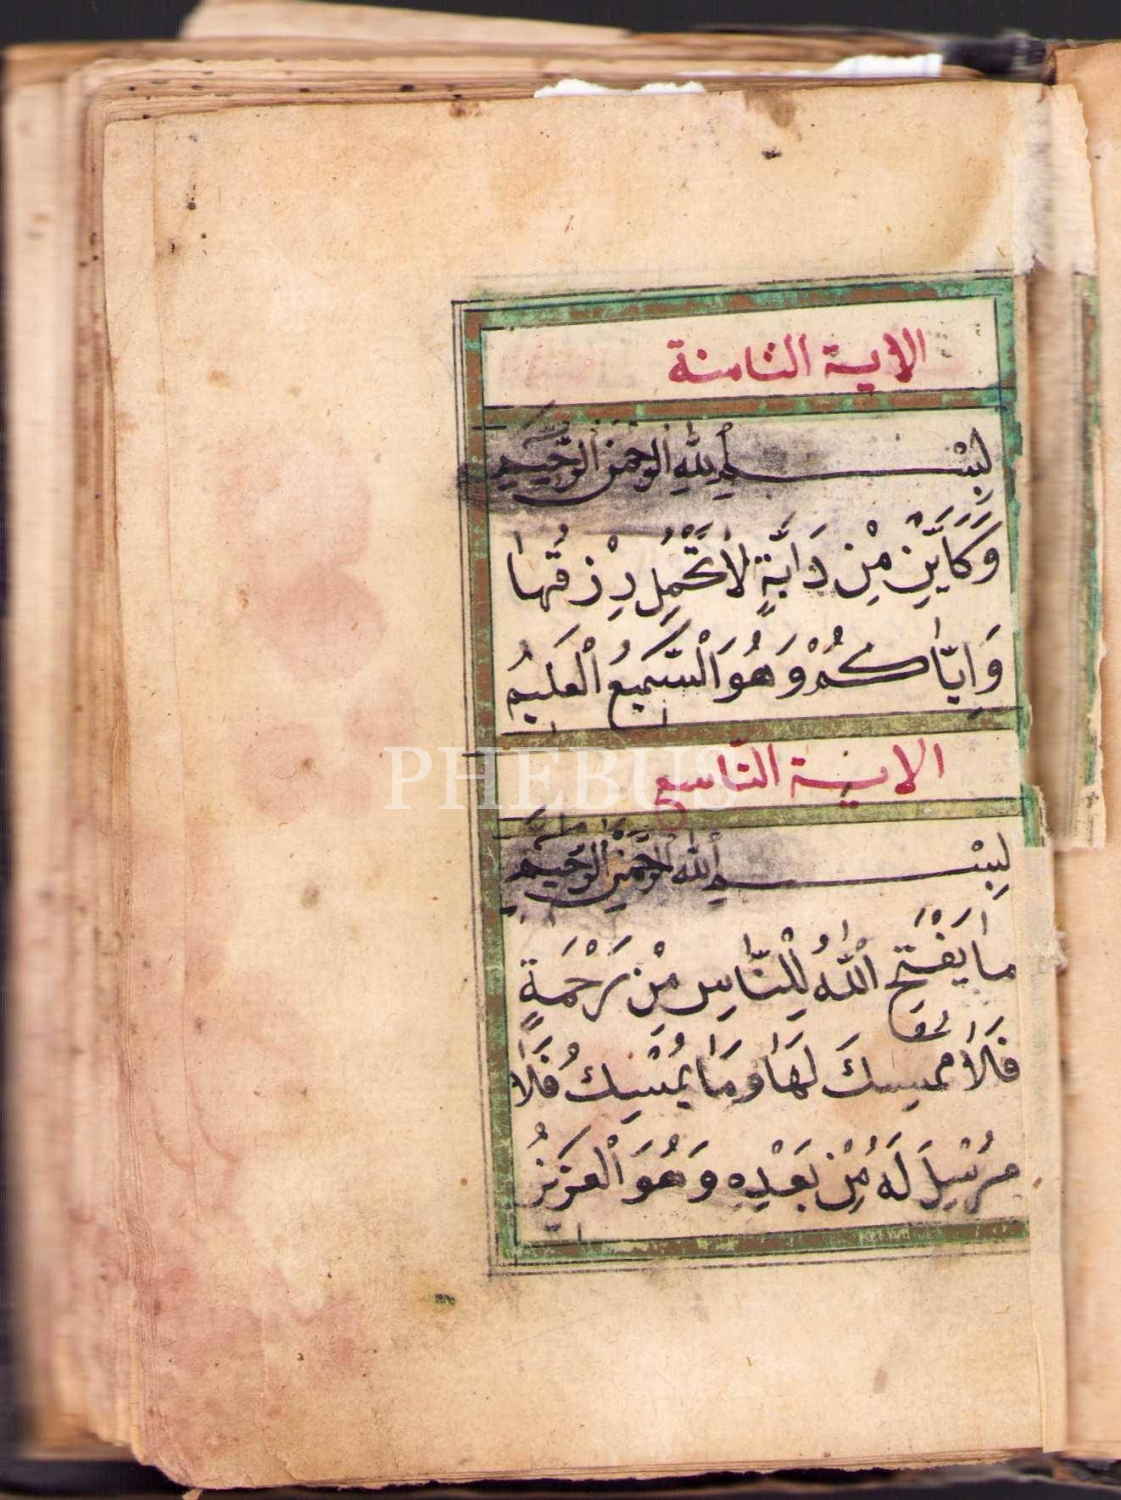 الاية الثامنة
بِسْمِ اللهِ الرَّحْمٰنِ الرَّحِيمِ
وَكَاَيِّنْ مِنْ دَابَّةٍ لَا تَحْمِلُ رِزْقَهَا
وَاِيَّاكُمْ وَهُوَ السَّمِيعُ الْعَلِيمُ
الاية التاسع
بِسْمِ اللهِ الرَّحْمٰنِ الرَّحِيمِ
مَا يَفْتَحِ اللّٰهُ لِلنَّاسِ مِنْ رَحْمَةٍ
فَلَا ممسِكَ لَهَا وَمَا يُمْسِكُ فَلَا
مُرْسِلَ لَهُ مِنْ بَعْدِهِ وَهُوَ الْعَزِيزُ
PHEBUS